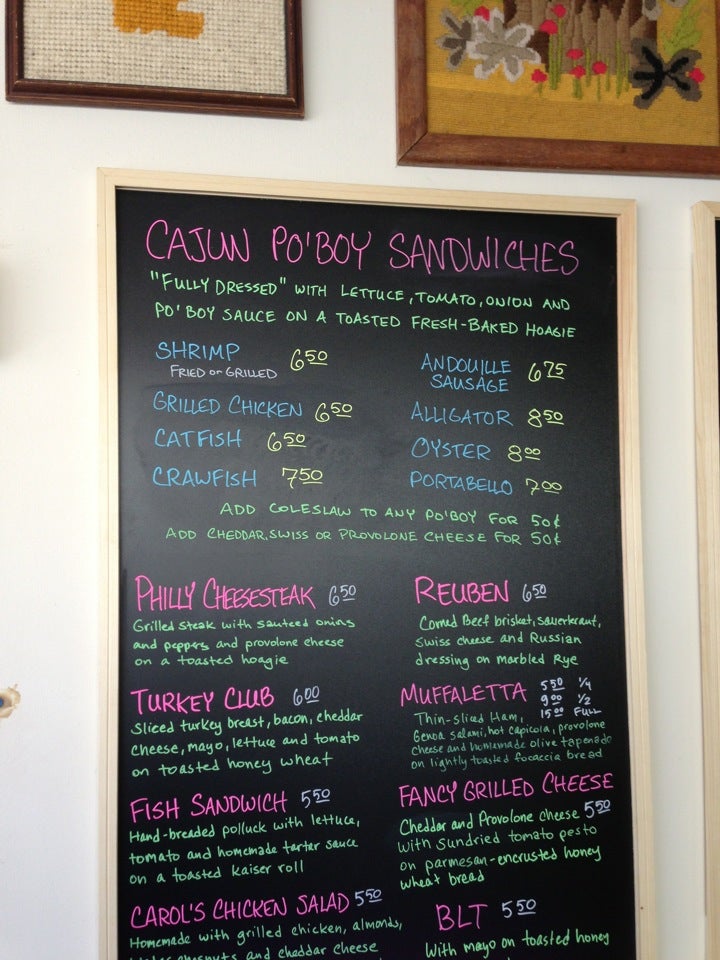 CAJUN PO'BOY SANDWICHES
"FULLY DRESSED" WITH LETTUCE, TOMATO, ONION AND
PO'BOY SAUCE ON A TOASTED FRESH-BAKED HOAGIE
SHRIMP 6 50
FRIED or GRILLED
GRILLED CHICKEN 6 50
CATFISH 6 50
CRAWFISH 7 50
ANDOUILLE
SAUSAGE 6 75
ALLIGATOR 8 50
OYSTER 8 00
PORTABELLO 7 00
ADD COLESLAW TO ANY PO'BOY FOR 50¢
ADD CHEDDAR, SWISS OR PROVOLONE CHEESE FOR 50¢
PHILLY CHEESESTEAK 6 50
Grilled steak with sauteed onins
and peppers and provolone cheese
on a toasted hoagie
TURKEY CLUB 6 00
Sliced turkey breast, bacon, cheddar
cheese, mayo, lettuce and tomato
on toasted honey wheat
FISH SANDWICH 5 50
Hand-breaded polluck with lettuce,
tomato and homemade tarter sauce
on a toasted kaiser roll
CAROL'S CHICKEN SALAD 5 50
Homemade with grilled chicken, almonds,
chesnuts and cheddar cheese
REUBEN 6 50
Corned Beef brisket, sauerkraut,
Swiss cheese and Russian
dressing on marbled Rye
MUFFALETTA 5 50 1/4
9 00 1/2
15 00 FULL
Thin-sliced Ham,
Genoa salami, hot capicola, provolone
cheese and homemade olive tapenade
on lightly toasted focaccia bread
FANCY GRILLED CHEESE
Cheddar and Provolone cheese 5 50
with sundried tomato pesto
on parmesan-encrusted honey
wheat bread
BLT 5 50
With mayo on toasted honey